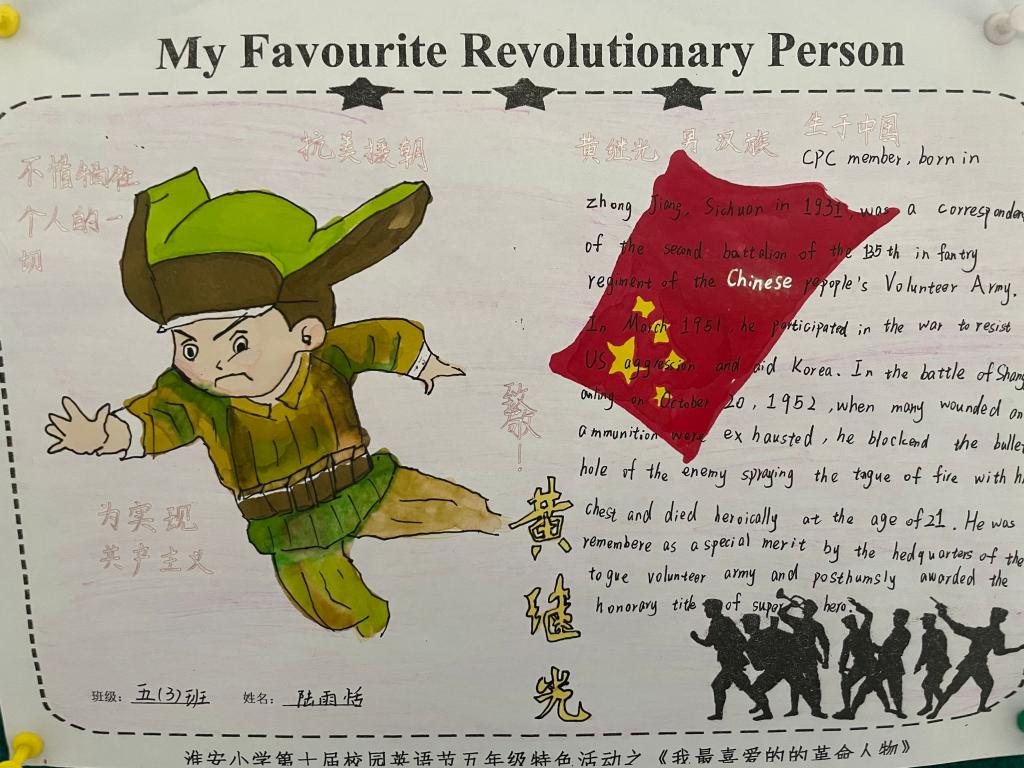 My Favourite Revolutionary Person
不惜牺牲
个人的一
切
抗美援朝
黄继光 男 汉族 生于中国
CPC member, born in
zhong Jiang, Sichuan in 1931, was a corresponden
of the second battalion of the 135th in fantry
regiment of the Chinese pepople's Volunteer Army.
In March 1951, he participated in the war to resist
US aggression and aid Korea. In the battle of Shang
anling on October 20, 1952, when many wounded an
ammunition were ex hausted, he blockend the bullet
hole of the enemy spraying the togue of fire with hi
chest and died heroically at the age of 21. He was
remembere as a special merit by the hedquarters of the
togue volunteer army and posthumsly awarded the
honorary title of super hero.
致敬!
黄继光
为实现
共产主义
班级: 五(3)班 姓名: 陆雨恬
淮安小学第十届校园英语节五年级特色活动之《我最喜爱的的革命人物》